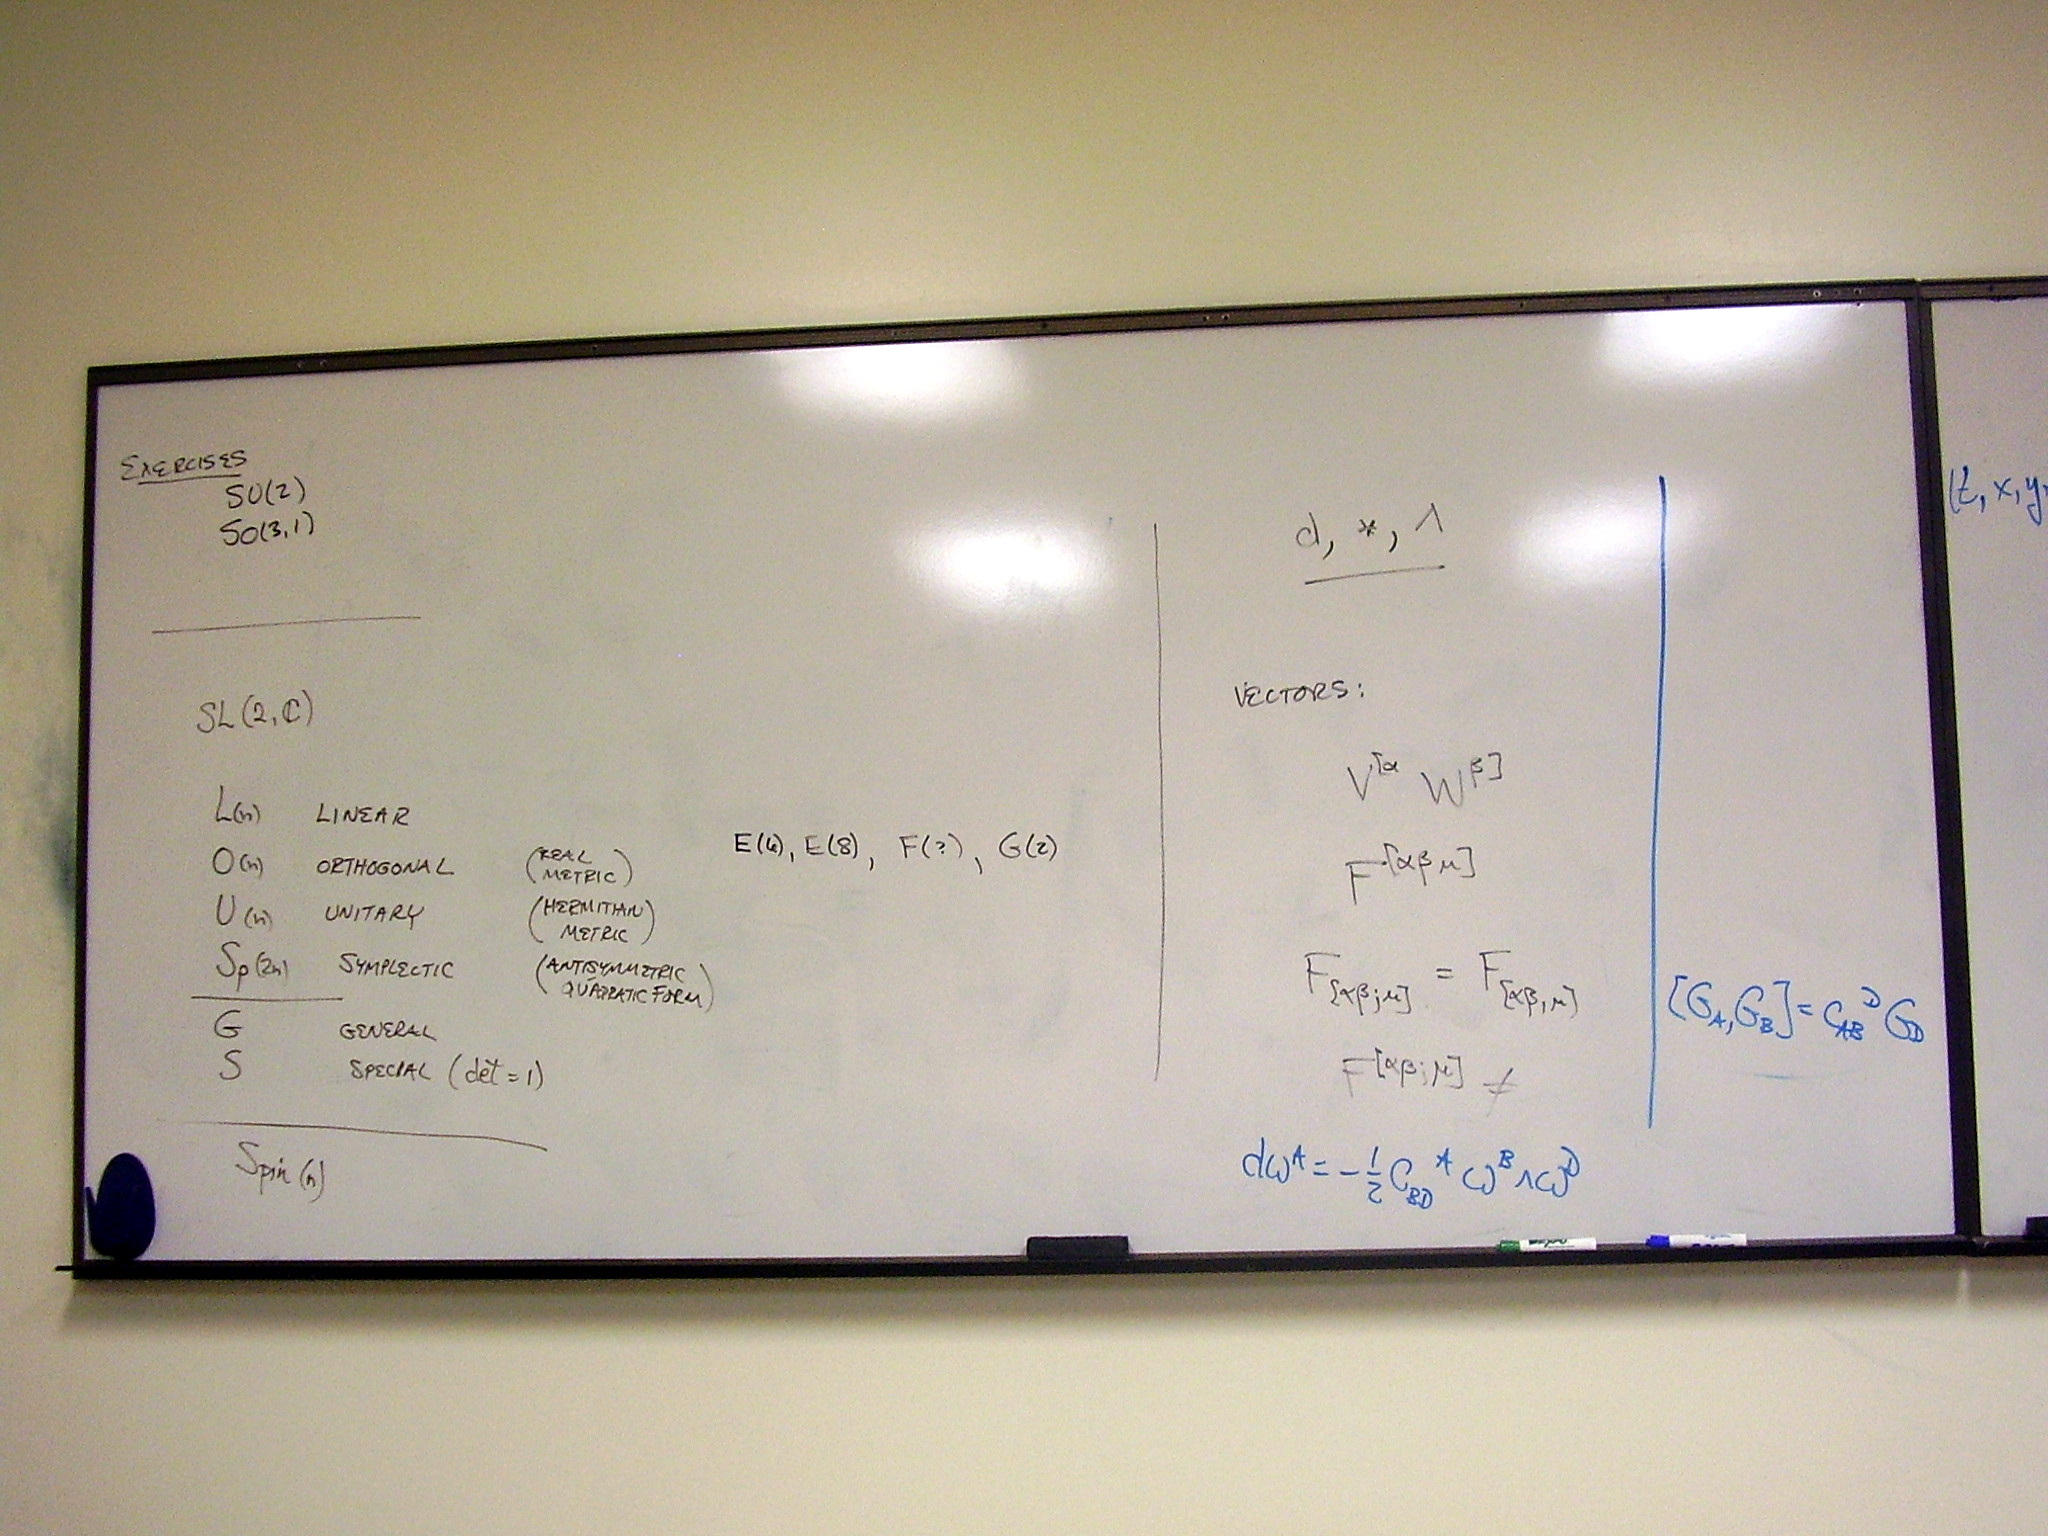 EXERCISES
SU(2)
SO(3,1)
SL(2,ℂ)
L(n) LINEAR
O(n) ORTHOGONAL (REAL METRIC)
E(6), E(8), F(?), G(2)
U(n) UNITARY (HERMITIAN METRIC)
Sp(2n) SYMPLECTIC (ANTISYMMETRIC QUADRATIC FORM)
G GENERAL
S SPECIAL (det = 1)
Spin(n)
d, *, ∧
VECTORS:
V^[α W^β]
F^[αβ,μ]
F_[αβ;μ] = F_[αβ,μ]
F^[αβ;μ] ≠
dω^A = -1/2 C_BD^A ω^B ∧ ω^D
[G_A, G_B] = C_AB^D G_D
(t, x, y,